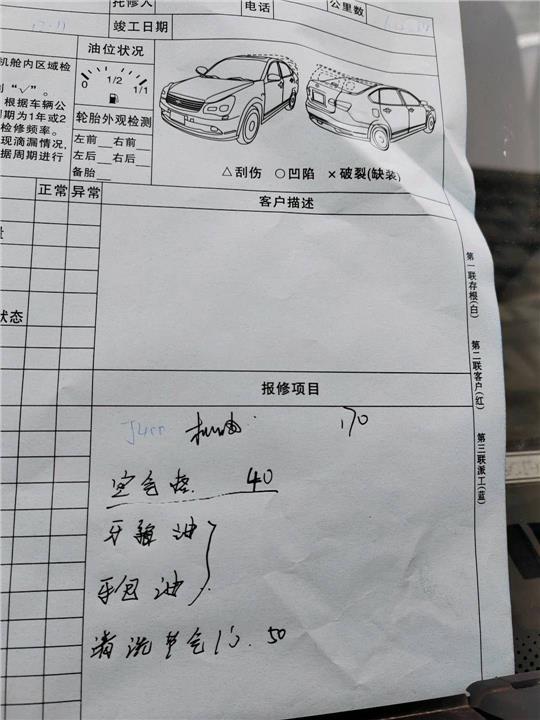 托修人
电话
公里数
竣工日期
机舱内区域检
油位状况
“√”。
1/2
1/1
根据车辆公
期为1年或2
检修频率。
现滴漏情况,
据周期进行
轮胎外观检测
左前 右前
左后 右后
备胎
△刮伤 ○凹陷 ×破裂(缺装)
正常 异常
客户描述
状态
第一联存根(白)
第二联客户(红)
第三联派工(蓝)
报修项目
机油 170
空气格 40
牙箱油
牙包油
清洗节气门 50